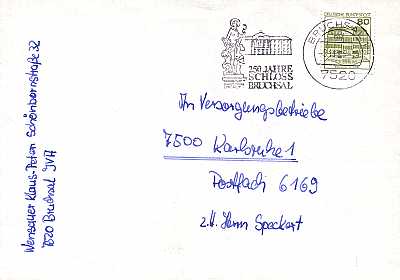 Wensauer Klaus-Peter Schönbornstraße 32
7520 Bruchsal JVA
250 JAHRE
SCHLOSS
BRUCHSAL
BRUCHSAL
7520
DEUTSCHE BUNDESPOST
80
An Versorgungsbetriebe
7500 Karlsruhe 1
Postfach 6169
z.H. Herrn Speckert